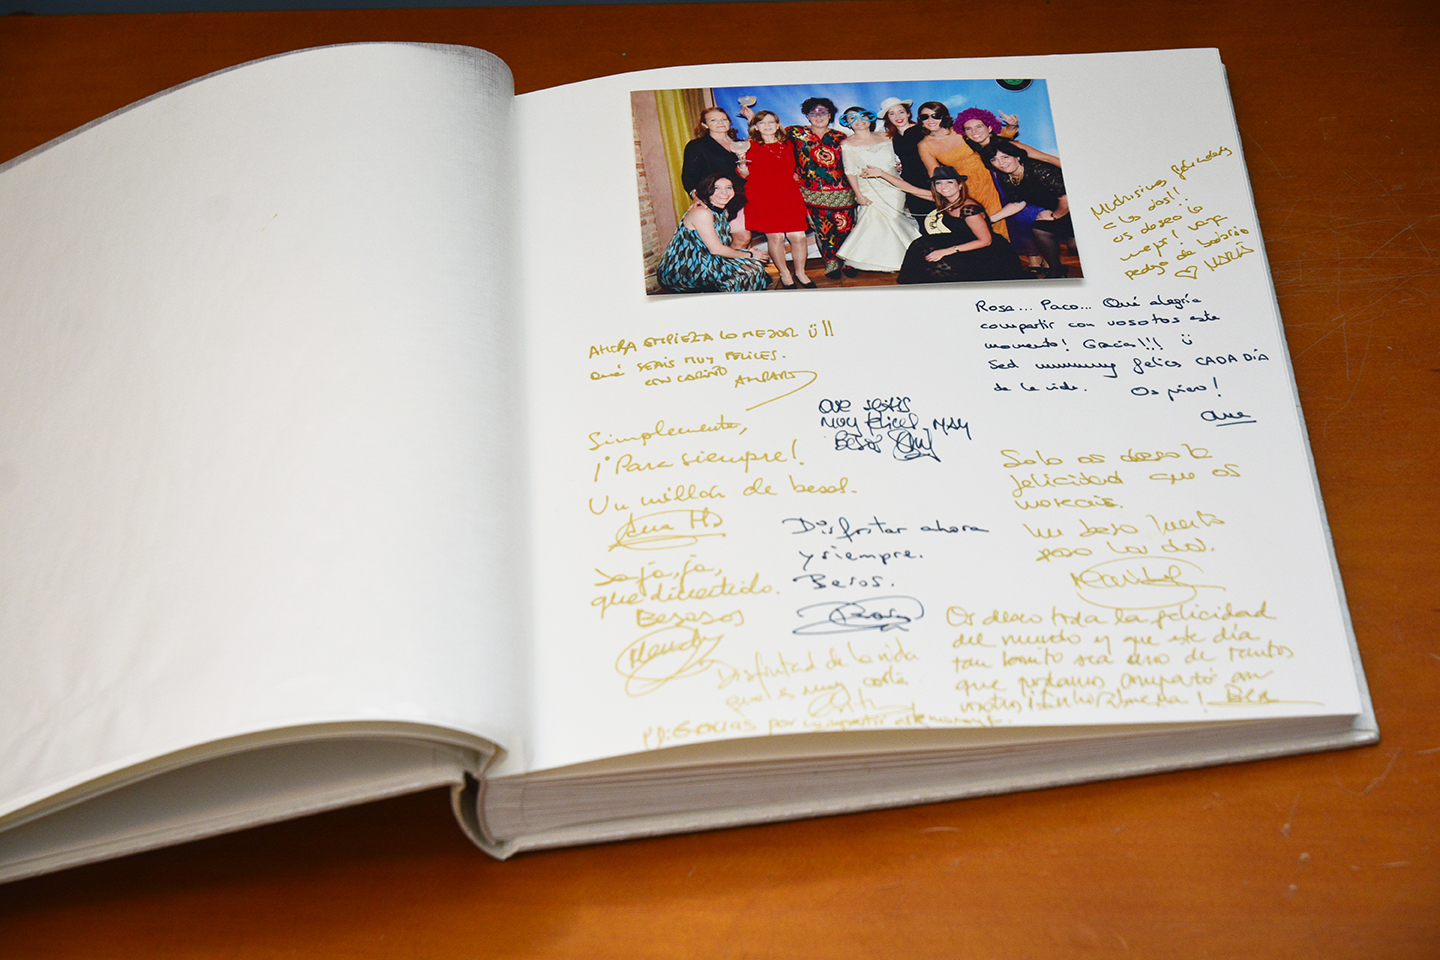 Muchísimas felicidades
a los dos!!
os deseo lo
mejor! vaya
de bodorrio
♡ MARÍA
Rosa... Paco... Qué alegría
compartir con vosotos este
momento! Gracias!!! ü
Sed mummmy felices CADA DÍA
de la vida. Os quiero!
Ana
AHORA EMPIEZA LO MEJOR ü!!
Qué SEAIS MUY FELICES.
CON CARIÑO AMPARO
QUE SEAIS
MUY FELICES, MUCHOS
BESOS
Simplemente,
¡Para siempre!
Un millón de besos.
Ana Mª
Solo os deseo la
felicidad que os
mereceis.
Un beso fuerte
para los dos.
Maribel
Disfrutar ahora
y siempre.
Besos.
Rosa
Ja, ja, ja,
que divertido.
Besasos
Os deseo toda la felicidad
del mundo y que este día
tan bonito sea uno de tantos
que podamos compartir con
vosotros! Enhorabuena! Bea
Disfrutad de la vida
que es muy corta
PD: Gracias por compartir este momento.